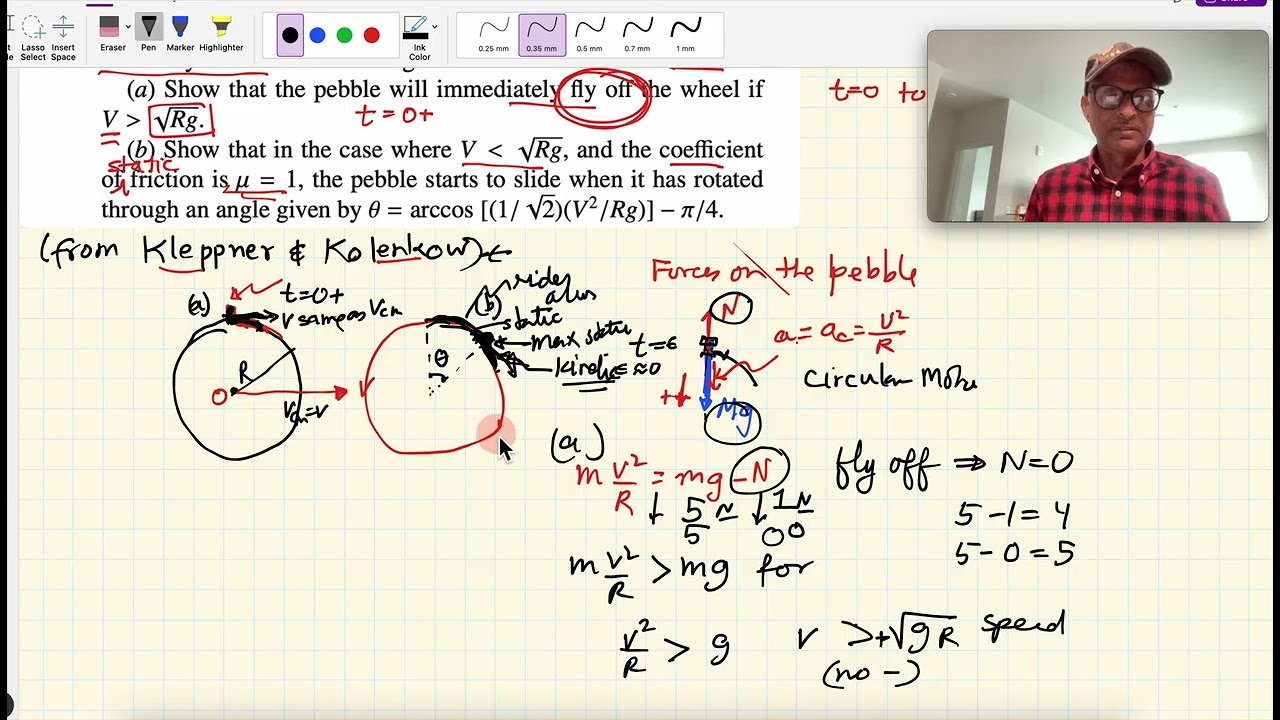 Lasso Select
Insert Space
Eraser
Pen
Marker
Highlighter
Ink Color
0.25 mm
0.35 mm
0.5 mm
0.7 mm
1 mm
(a) Show that the pebble will immediately fly off the wheel if
V > √Rg.
t = 0+
t=0 to
(b) Show that in the case where V < √Rg, and the coefficient
static
of friction is μ = 1, the pebble starts to slide when it has rotated
through an angle given by θ = arccos [(1/ √2)(V²/Rg)] − π/4.
(from Kleppner & Kolenkow)
(a)
t=0+
V same as Vcm
R
O
Vcm=V
(b)
rides
static
max static
kinetic
≈0
θ
Forces on the pebble
N
a = ac = V²/R
Mg
Circular Motn
(a)
m V²/R = mg − N
fly off ⇒ N=0
5 N
1 N
5
0
5 − 1 = 4
5 − 0 = 5
m V²/R > mg for
V²/R > g
V > +√gR speed
(no −)